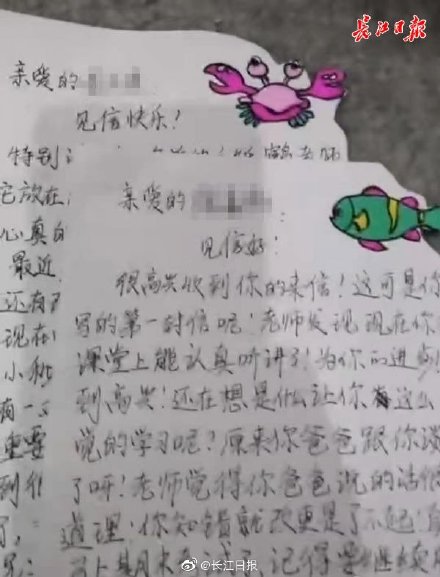 长江日报
亲爱的
见信快乐!
特别
它放在
心真
最近
还有
现在
小
有一
重要
到
了,
亲爱的
见信好:
很高兴收到你的来信!这可是你
写的第一封信呢!老师发现现在你
课堂上能认真听讲了!为你的进步
到高兴!还在想是什么让你有这么
觉的学习呢?原来你爸爸跟你谈
了呀!老师觉得你爸爸说的话很
道理,你知错就改更是了不起!
马上期末 记得要继续
@长江日报